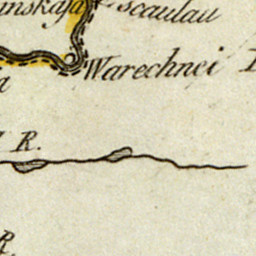 mskaja
scaulau
Warechnei
a
R.
R.